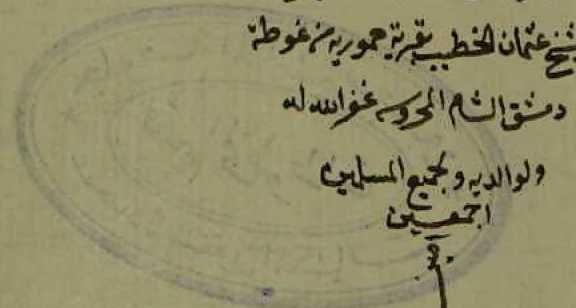 شيخ عثمان الخطيب بقرية حمورية من غوطة
دمشق الشام المحروسه غفر الله له
ولوالديه ولجميع المسلمين
اجمعين